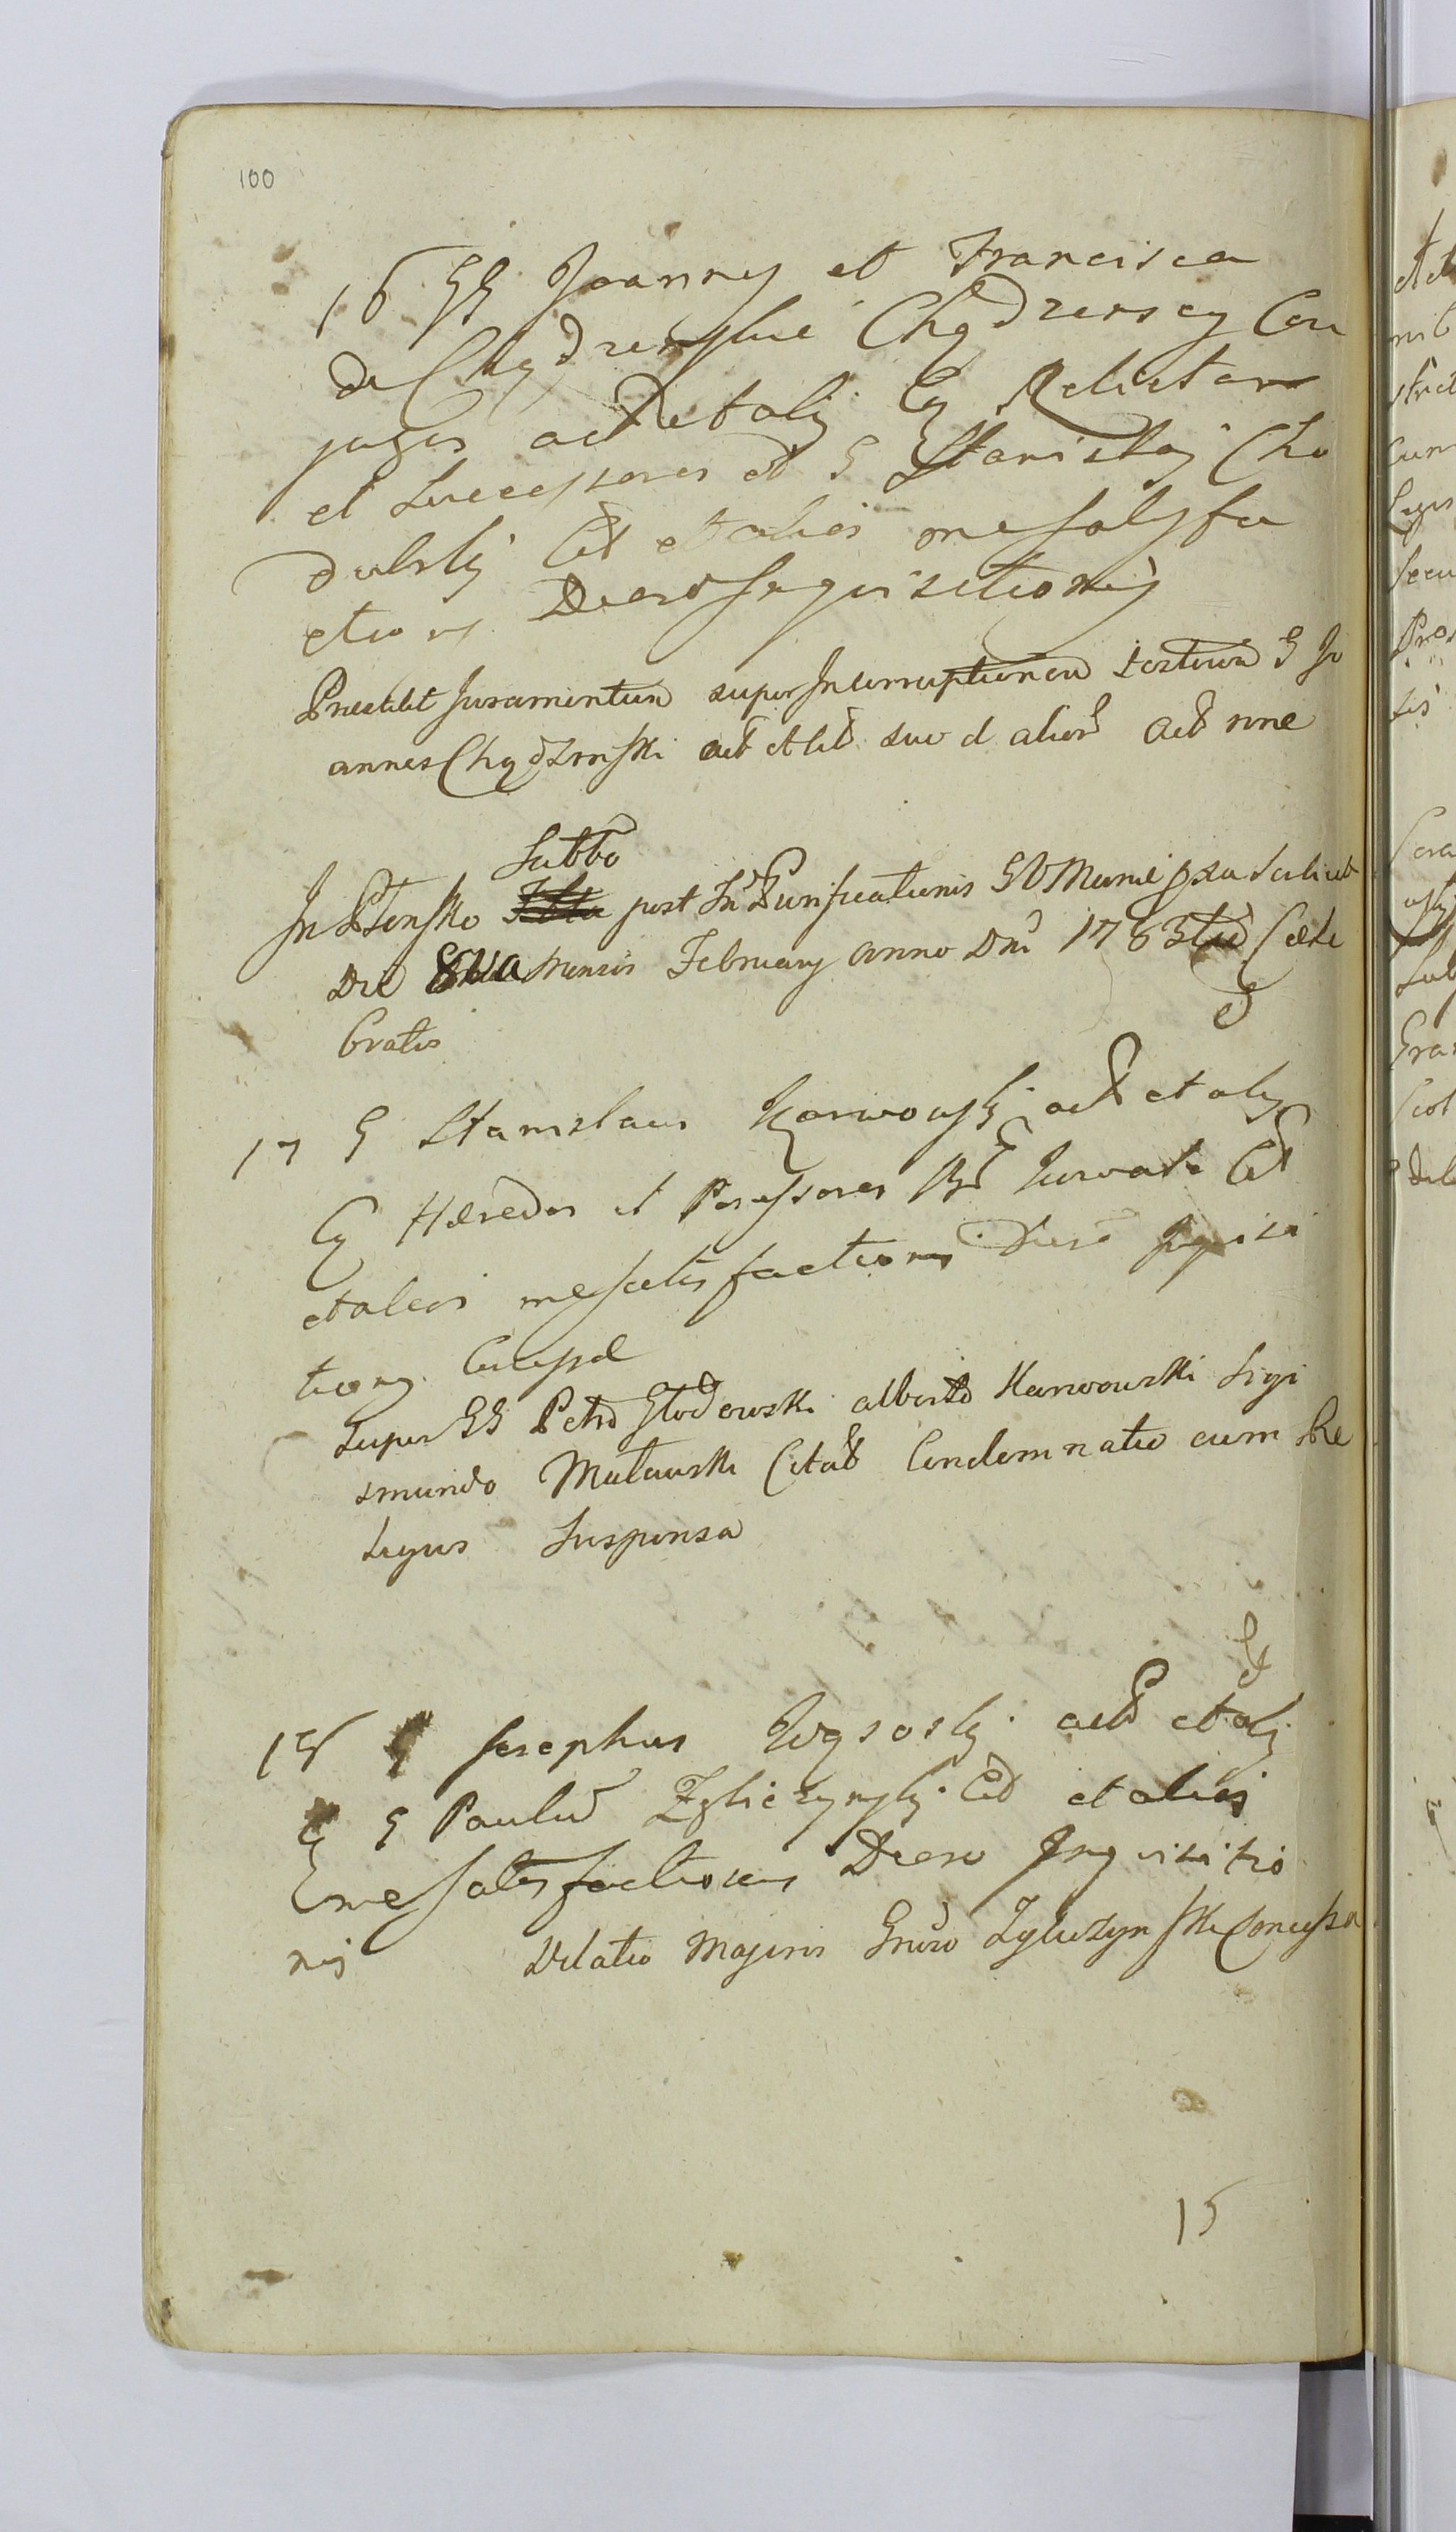 100
16 GG Joannes et Francisca
de Chądzynskie Chądzynscy Con
juges act et alij Cy Relictam
et Successores olim G Stanislaj Cho
dubskj Cit et alios ine satysfa
ctiony Decro Inquisitionis
Prestitit Juramentum super Interruptionem testium G Jo
annes Chądzinski act et lit suo et alior act nne
Sabbo
In Płonsko post In Purificationis BV Mariæ pxa Scilicet
Die 5ta Mensis February Anno Dni 1763tio Cele
bratis
17 G Stanislaus Karwowskj act et alij
Cy Hæredes et Possessores Bd Kurwati Cit
et alios ine satis factionis Decro Inquisi
tiony Cumpd
Super GG Petro Głodowski Alberto Karwowski Sigi
smundo Malewski Citat Condemnatio cum Re
legus Suspensa
18 G Josephus Wysoskj act et alij
Cy G Paulum Zgliczynskj Cit et alios
ine satis factionis Decro Inquisitio
nis
Dilatio Majoris Gnoso Zgliczynski Concessa
15